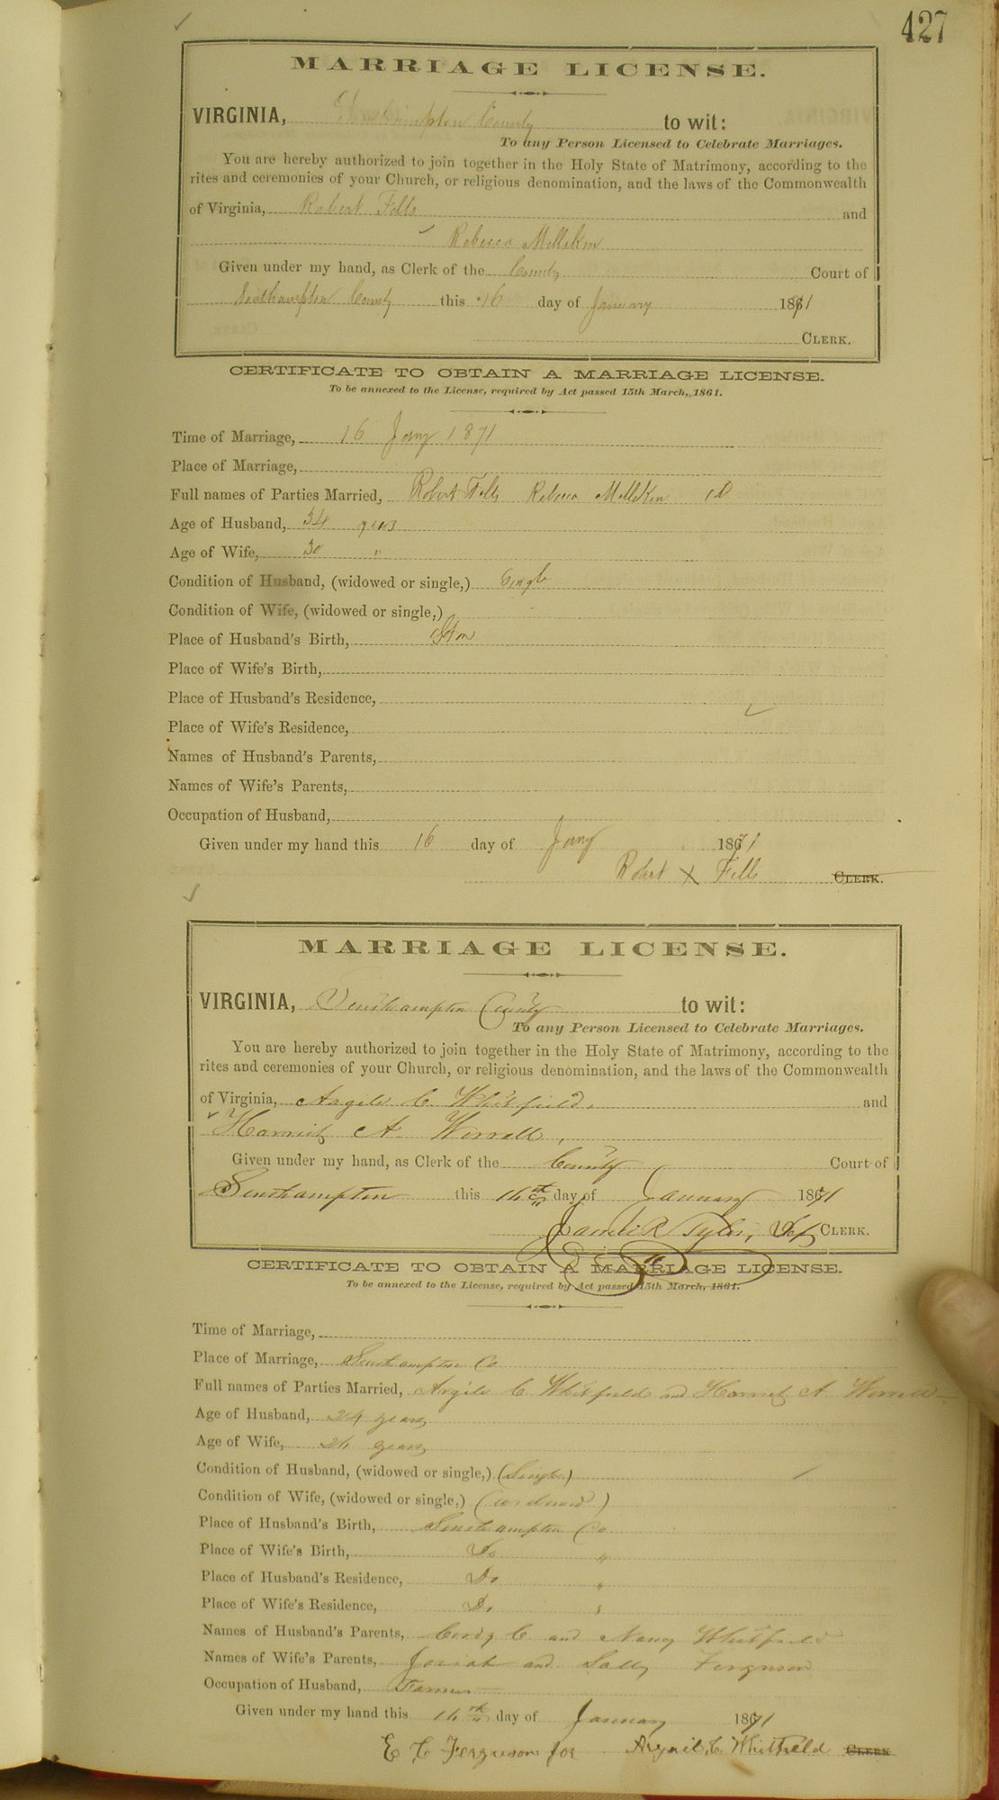 427
MARRIAGE LICENSE.
VIRGINIA, Southampton County to wit:
To any Person Licensed to Celebrate Marriages.
You are hereby authorized to join together in the Holy State of Matrimony, according to the
rites and ceremonies of your Church, or religious denomination, and the laws of the Commonwealth
of Virginia, Robert Fells and
Rebecca Milliken
Given under my hand, as Clerk of the County Court of
Southampton County this 16 day of January 1871
CLERK.
CERTIFICATE TO OBTAIN A MARRIAGE LICENSE.
To be annexed to the License, required by Act passed 15th March, 1861.
Time of Marriage, 16 Jany 1871
Place of Marriage,
Full names of Parties Married, Robert Fells Rebecca Milliken
Age of Husband, 34 yrs
Age of Wife, 30 "
Condition of Husband, (widowed or single,) Single
Condition of Wife, (widowed or single,)
Place of Husband's Birth,
Place of Wife's Birth,
Place of Husband's Residence,
Place of Wife's Residence,
Names of Husband's Parents,
Names of Wife's Parents,
Occupation of Husband,
Given under my hand this 16 day of Jany 1871
Robert X Fells CLERK.
MARRIAGE LICENSE.
VIRGINIA, Southampton County to wit:
To any Person Licensed to Celebrate Marriages.
You are hereby authorized to join together in the Holy State of Matrimony, according to the
rites and ceremonies of your Church, or religious denomination, and the laws of the Commonwealth
of Virginia, C. Whitfield, and
Harriet A. Worrell,
Given under my hand, as Clerk of the County Court of
Southampton this 16th day of January 1871
James R Tyler, CLERK.
CERTIFICATE TO OBTAIN A MARRIAGE LICENSE.
To be annexed to the License, required by Act passed 15th March, 1861.
Time of Marriage,
Place of Marriage, Southampton Co
Full names of Parties Married, C. Whitfield and Harriet A. Worrell
Age of Husband, 24 years
Age of Wife, years
Condition of Husband, (widowed or single,) (Single)
Condition of Wife, (widowed or single,) (widowed)
Place of Husband's Birth, Southampton Co
Place of Wife's Birth, Do "
Place of Husband's Residence, Do "
Place of Wife's Residence, Do "
Names of Husband's Parents, C and Nancy Whitfield
Names of Wife's Parents, Josiah and Sally Ferguson
Occupation of Husband, Farmer
Given under my hand this 16th day of January 1871
E C Ferguson for C. Whitfield CLERK